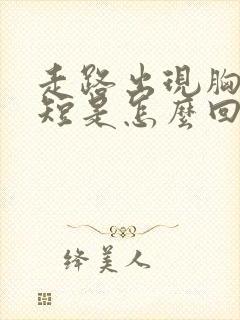 走路出現胸
短是怎麼回
绛美人